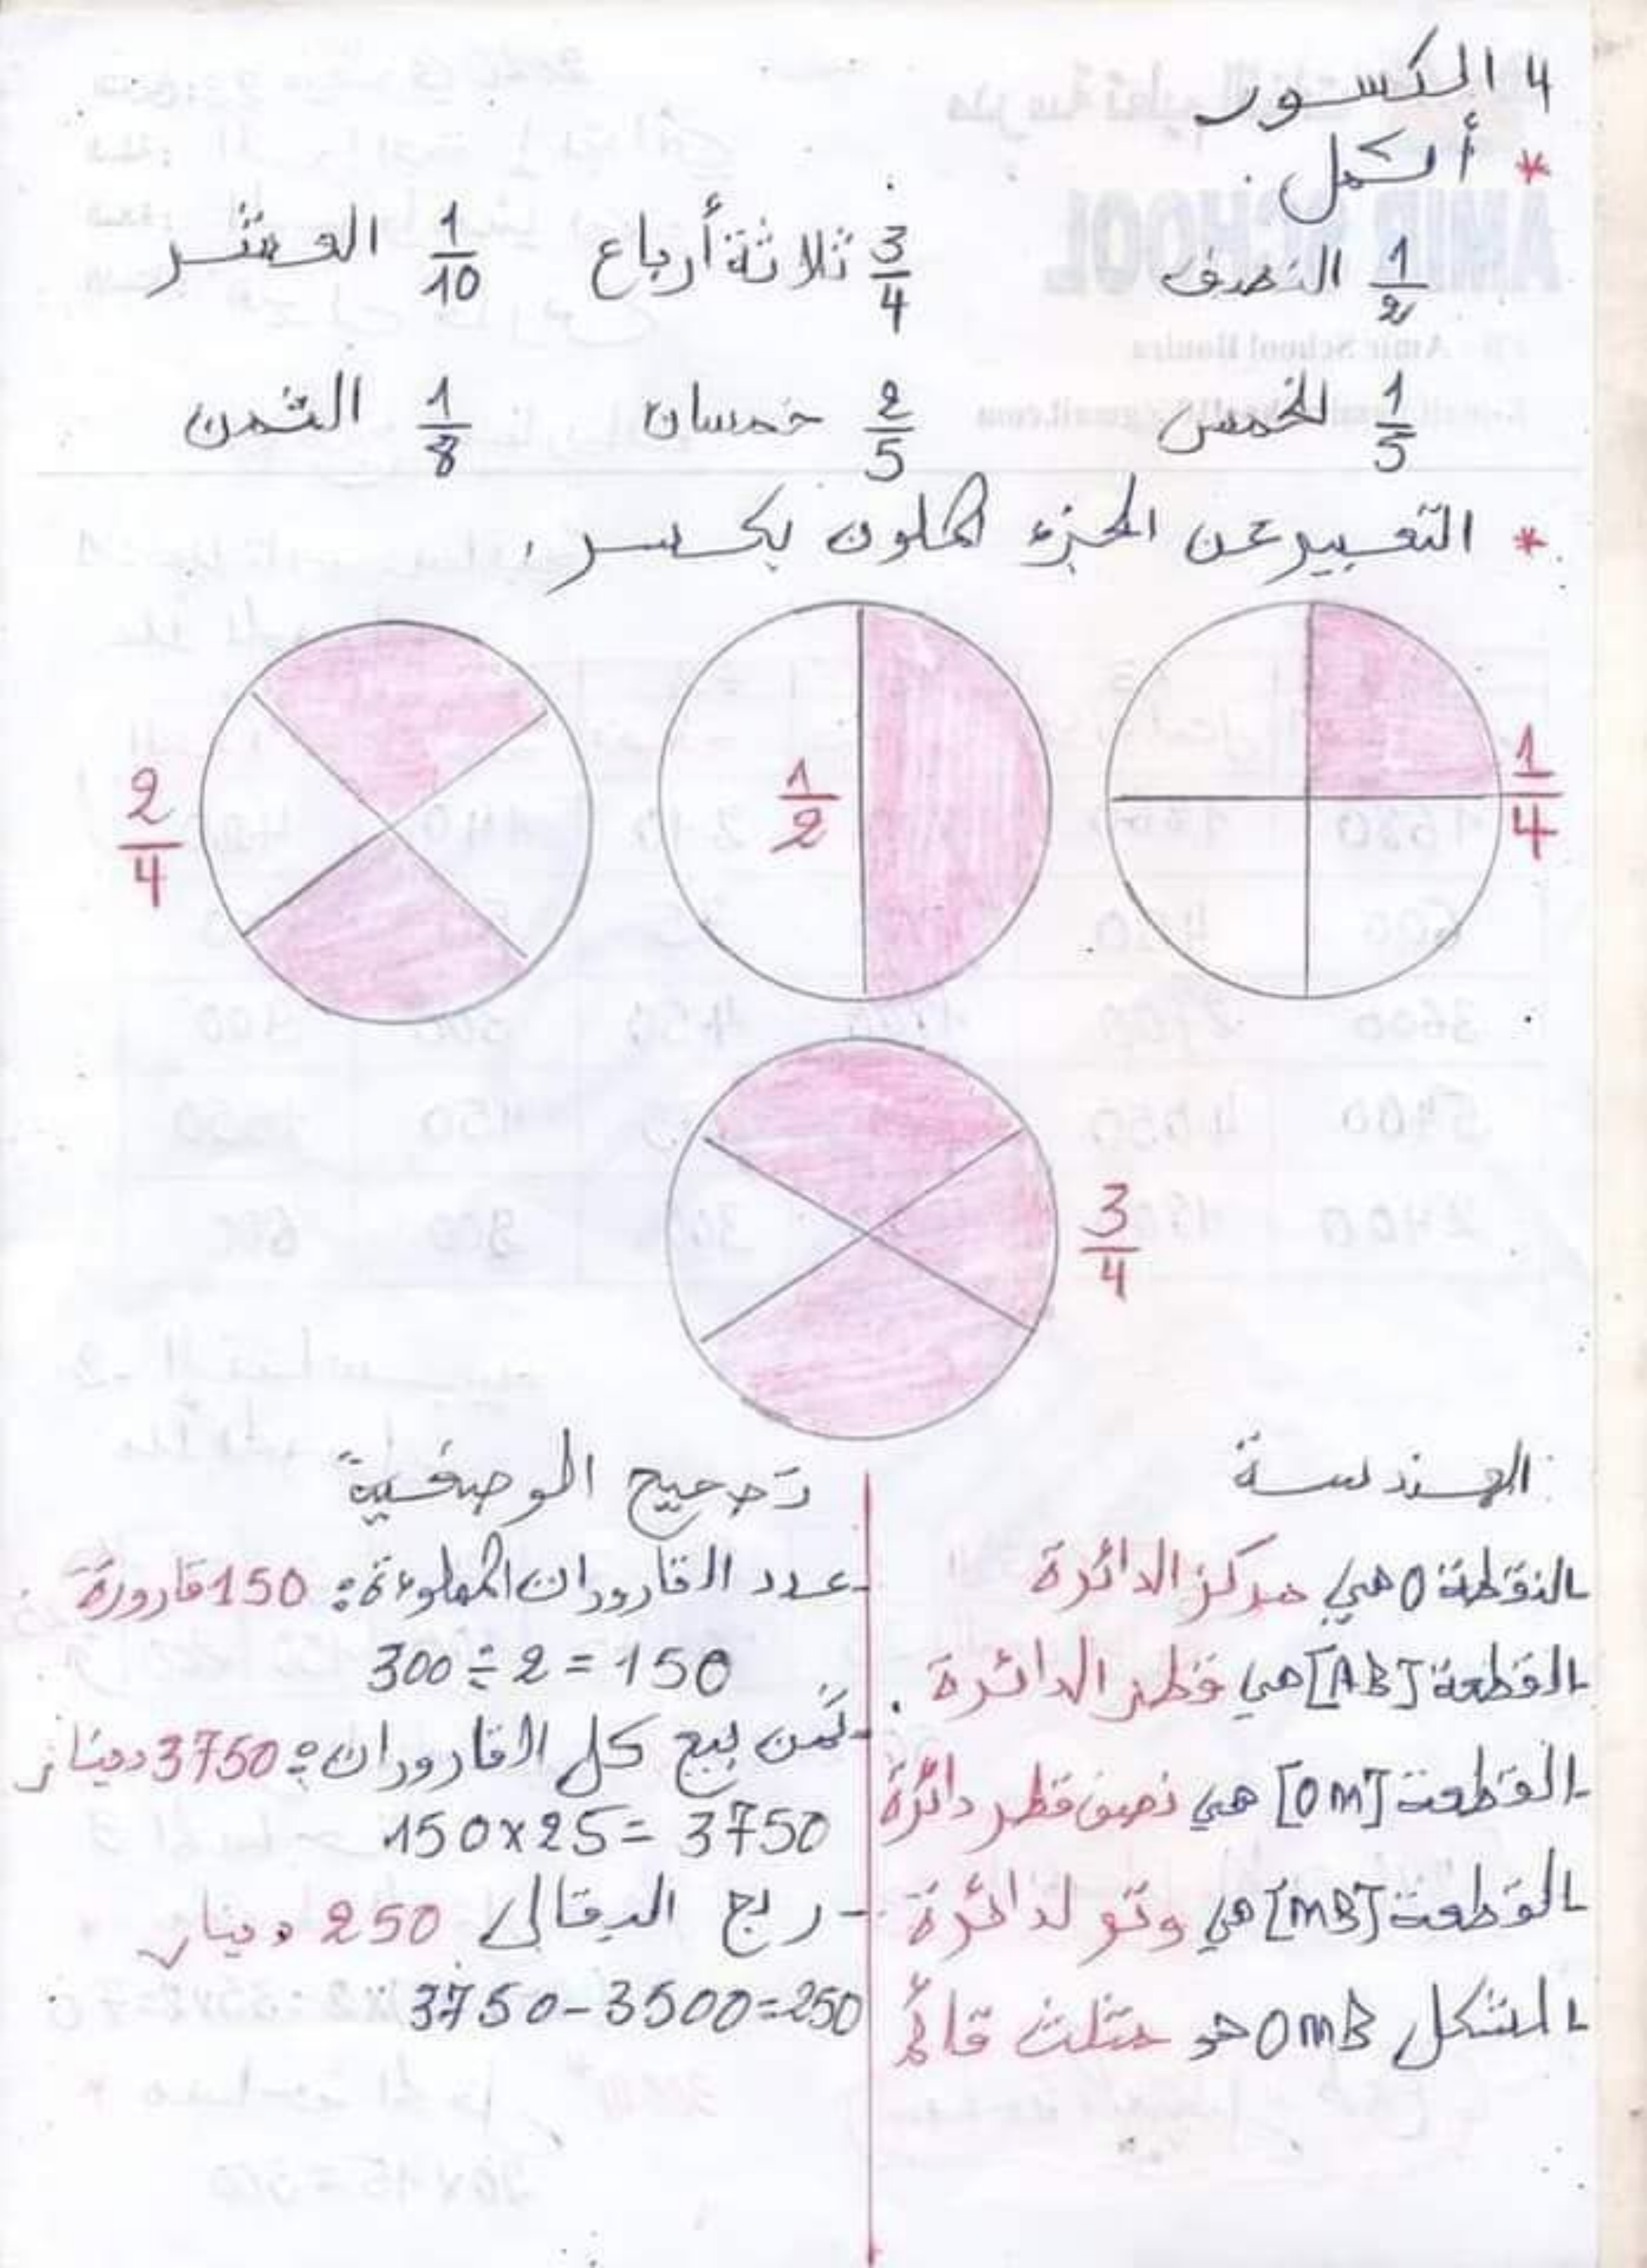 4 الكسور
* أكمل.
1/2 النصف 3/4 ثلاثة أرباع 1/10 العشر
1/5 الخمس 2/5 خمسان 1/8 الثمن
* التعبير عن الجزء الملون بكسر.
1/4
1/2
2/4
3/4
الهندسة
- النقطة O هي مركز الدائرة
- القطعة [AB] هي قطر الدائرة.
- القطعة [OM] هي نصف قطر دائرة
- القطعة [MB] هي وتر لدائرة
- الشكل OMB هو مثلث قائم
تصحيح الوضعية
- عدد القارورات المملوءة: 150 قارورة
300 ÷ 2 = 150
- ثمن بيع كل القارورات: 3750 دينار
150 x 25 = 3750
- ربح البقال 250 دينار
3750 - 3500 = 250